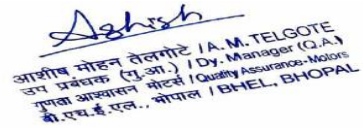 Ashish
आशीष मोहन तेलगोटे / A. M. TELGOTE
उप प्रबंधक (गु.आ.) / Dy. Manager (Q.A.)
गुणवा आश्वासन मोटर्स / Quality Assurance-Motors
बी.एच.ई.एल., भोपाल / BHEL, BHOPAL